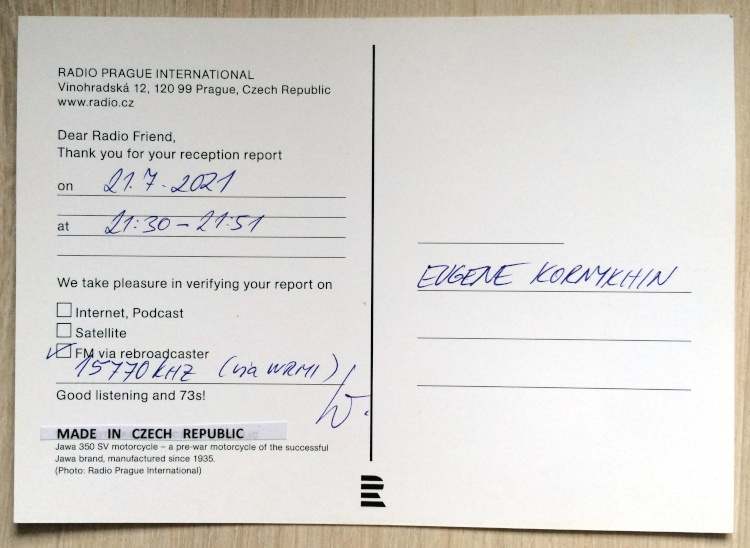 RADIO PRAGUE INTERNATIONAL
Vinohradská 12, 120 99 Prague, Czech Republic
www.radio.cz
Dear Radio Friend,
Thank you for your reception report
on 21.7.2021
at 21:30 - 21:51
We take pleasure in verifying your report on
Internet, Podcast
Satellite
FM via rebroadcaster
15770 kHz (via WRMI)
Good listening and 73s!
MADE IN CZECH REPUBLIC
Jawa 350 SV motorcycle – a pre-war motorcycle of the successful
Jawa brand, manufactured since 1935.
(Photo: Radio Prague International)
EUGENE KORNYKHIN